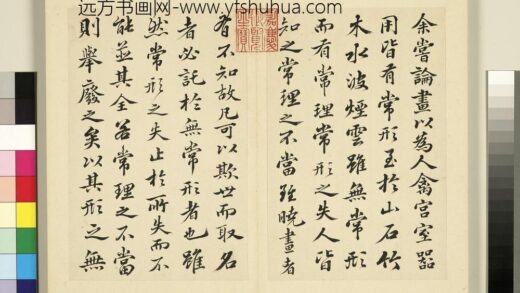 远方书画网-www.yfshuhua.com
余嘗論畫以為人禽宮室器
用皆有常形至於山石竹
木水波煙雲雖無常形
而有常理常形之失人皆
知之常理之不當雖曉畫者
有不知故凡可以欺世而取名
者必託於無常形者也雖
然常形之失止於所失而不
能病其全若常理之不當
則舉廢之矣以其形之無